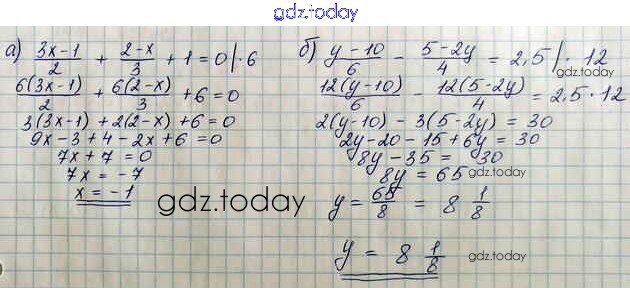 gdz.today
а) (3x-1)/2 + (2-x)/3 + 1 = 0 |· 6
6(3x-1)/2 + 6(2-x)/3 + 6 = 0
3(3x-1) + 2(2-x) + 6 = 0
9x - 3 + 4 - 2x + 6 = 0
7x + 7 = 0
7x = -7
x = -1
gdz.today
б) (y-10)/6 - (5-2y)/4 = 2,5 |· 12
gdz.today
12(y-10)/6 - 12(5-2y)/4 = 2,5 · 12
2(y-10) - 3(5-2y) = 30
2y - 20 - 15 + 6y = 30
8y - 35 = 30
8y = 65
gdz.today
y = 65/8 = 8 1/8
y = 8 1/8
gdz.today